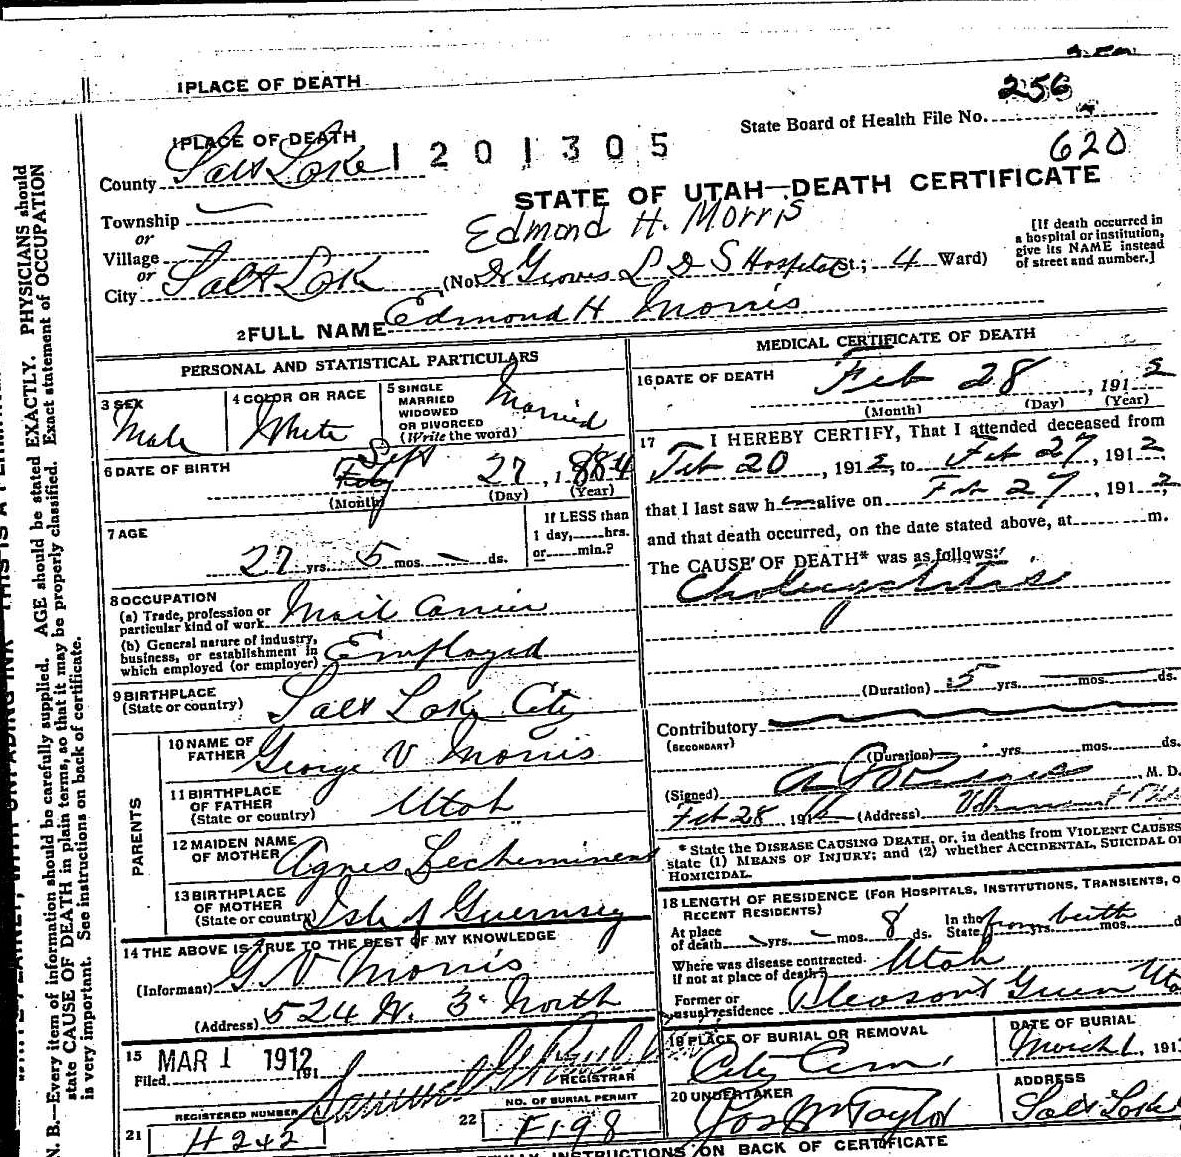 1 PLACE OF DEATH
256
1 PLACE OF DEATH
State Board of Health File No.
620
County Salt Lake 1201305
STATE OF UTAH—DEATH CERTIFICATE
Township
Edmond H. Morris
or
Village
[If death occurred in a hospital or institution, give its NAME instead of street and number.]
or
City Salt Lake (No. Dr Groves L D S Hospital St.; 4 Ward)
2 FULL NAME Edmond H Morris
PERSONAL AND STATISTICAL PARTICULARS
3 SEX
Male
4 COLOR OR RACE
White
5 SINGLE
MARRIED
WIDOWED
OR DIVORCED
(Write the word)
Married
6 DATE OF BIRTH
Sept
Feby 27, 1884
(Month) (Day) (Year)
7 AGE
27 yrs. 5 mos. — ds.
If LESS than
1 day, hrs.
or min.?
8 OCCUPATION
(a) Trade, profession or
particular kind of work Mail Carrier
(b) General nature of industry,
business, or establishment in
which employed (or employer) Employed
9 BIRTHPLACE
(State or country) Salt Lake City
PARENTS
10 NAME OF
FATHER George V Morris
11 BIRTHPLACE
OF FATHER
(State or country) Utah
12 MAIDEN NAME
OF MOTHER Agnes Lecheminent
13 BIRTHPLACE
OF MOTHER
(State or country) Isle of Guernsey
14 THE ABOVE IS TRUE TO THE BEST OF MY KNOWLEDGE
(Informant) G V Morris
(Address) 524 W. 3d North
15
Filed MAR 1 1912 191
Samuel G
REGISTRAR
21 REGISTERED NUMBER
H242
22 NO. OF BURIAL PERMIT
F198
MEDICAL CERTIFICATE OF DEATH
16 DATE OF DEATH
Feb 28, 1912
(Month) (Day) (Year)
17 I HEREBY CERTIFY, That I attended deceased from
Feb 20, 1912, to Feb 27, 1912,
that I last saw h alive on Feb 27, 1912,
and that death occurred, on the date stated above, at m.
The CAUSE OF DEATH* was as follows:
Cholecystitis
(Duration) 5 yrs. mos. ds.
Contributory
(SECONDARY)
(Duration) yrs. mos. ds.
(Signed) M. D.
Feb 28, 191 (Address)
* State the DISEASE CAUSING DEATH, or, in deaths from VIOLENT CAUSES
state (1) MEANS OF INJURY; and (2) whether ACCIDENTAL, SUICIDAL OR
HOMICIDAL.
18 LENGTH OF RESIDENCE (FOR HOSPITALS, INSTITUTIONS, TRANSIENTS, O
RECENT RESIDENTS)
At place
of death — yrs. — mos. 8 ds. In the State from birth yrs. mos. d
Where was disease contracted
if not at place of death? Utah
Former or
usual residence Pleasant Grove Uta
19 PLACE OF BURIAL OR REMOVAL
City Cem.
DATE OF BURIAL
March 1, 191
20 UNDERTAKER
Jos Wm Taylor
ADDRESS
Salt Lake
INSTRUCTIONS ON BACK OF CERTIFICATE
N. B.—Every item of information should be carefully supplied. AGE should be stated EXACTLY. PHYSICIANS should
state CAUSE OF DEATH in plain terms, so that it may be properly classified. Exact statement of OCCUPATION
is very important. See instructions on back of certificate.